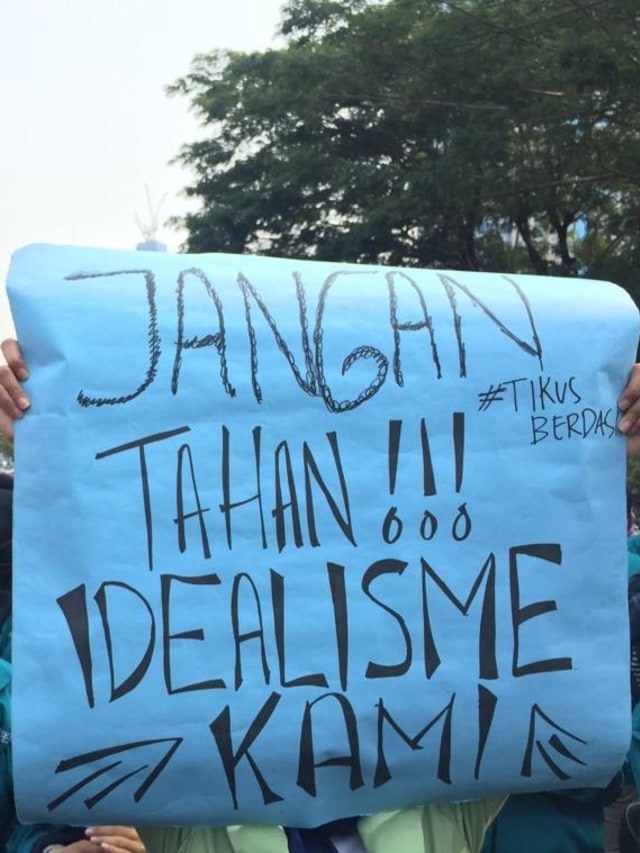 JANGAN
#TIKUS
BERDAS
TAHAN!!!
IDEALISME
KAMI